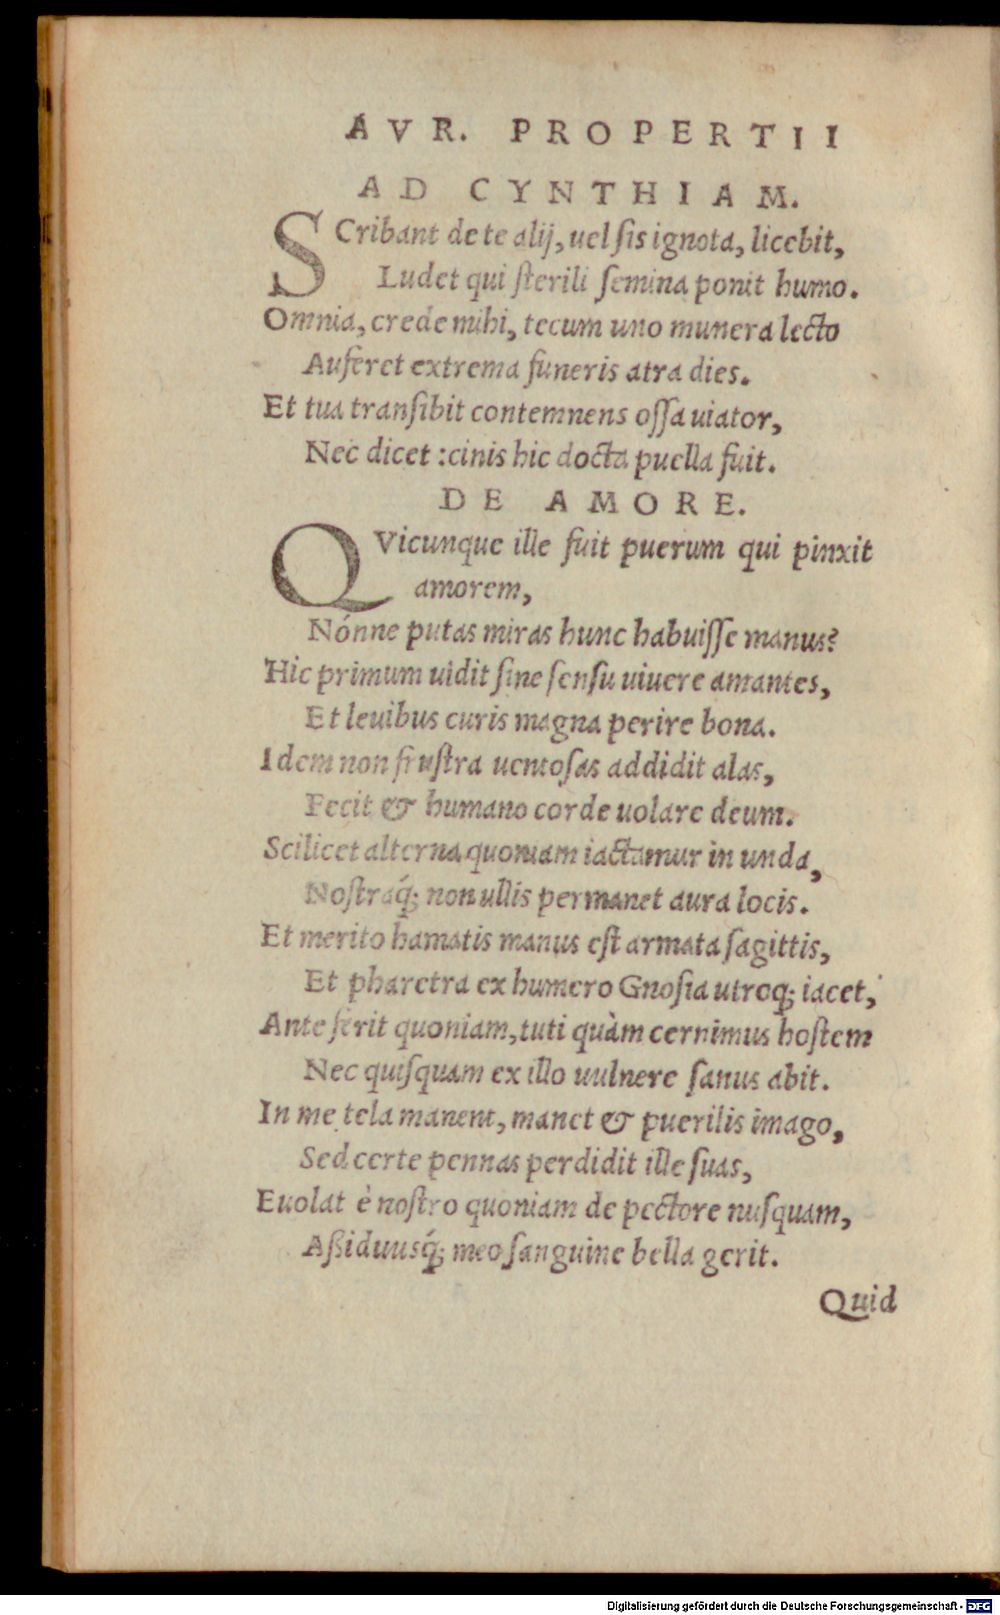 AVR. PROPERTII
AD CYNTHIAM.
SCribant de te alij, uel sis ignota, licebit,
Ludet qui sterili semina ponit humo.
Omnia, crede mihi, tecum uno munera lecto
Auferet extrema funeris atra dies.
Et tua transibit contemnens ossa uiator,
Nec dicet : cinis hic docta puella fuit.
DE AMORE.
QVicunque ille fuit puerum qui pinxit
amorem,
Nónne putas miras hunc habuisse manus?
Hic primum uidit sine sensu uiuere amantes,
Et leuibus curis magna perire bona.
Idem non frustra uentosas addidit alas,
Fecit & humano corde uolare deum.
Scilicet alterna quoniam iactamur in unda,
Nostraq́; non ullis permanet aura locis.
Et merito hamatis manus est armata sagittis,
Et pharetra ex humero Gnosia utroq; iacet,
Ante ferit quoniam, tuti quàm cernimus hostem
Nec quisquam ex illo uulnere sanus abit.
In me tela manent, manet & puerilis imago,
Sed certe pennas perdidit ille suas,
Euolat è nostro quoniam de pectore nusquam,
Aßiduusq́; meo sanguine bella gerit.
Quid
Digitalisierung gefördert durch die Deutsche Forschungsgemeinschaft - DFG